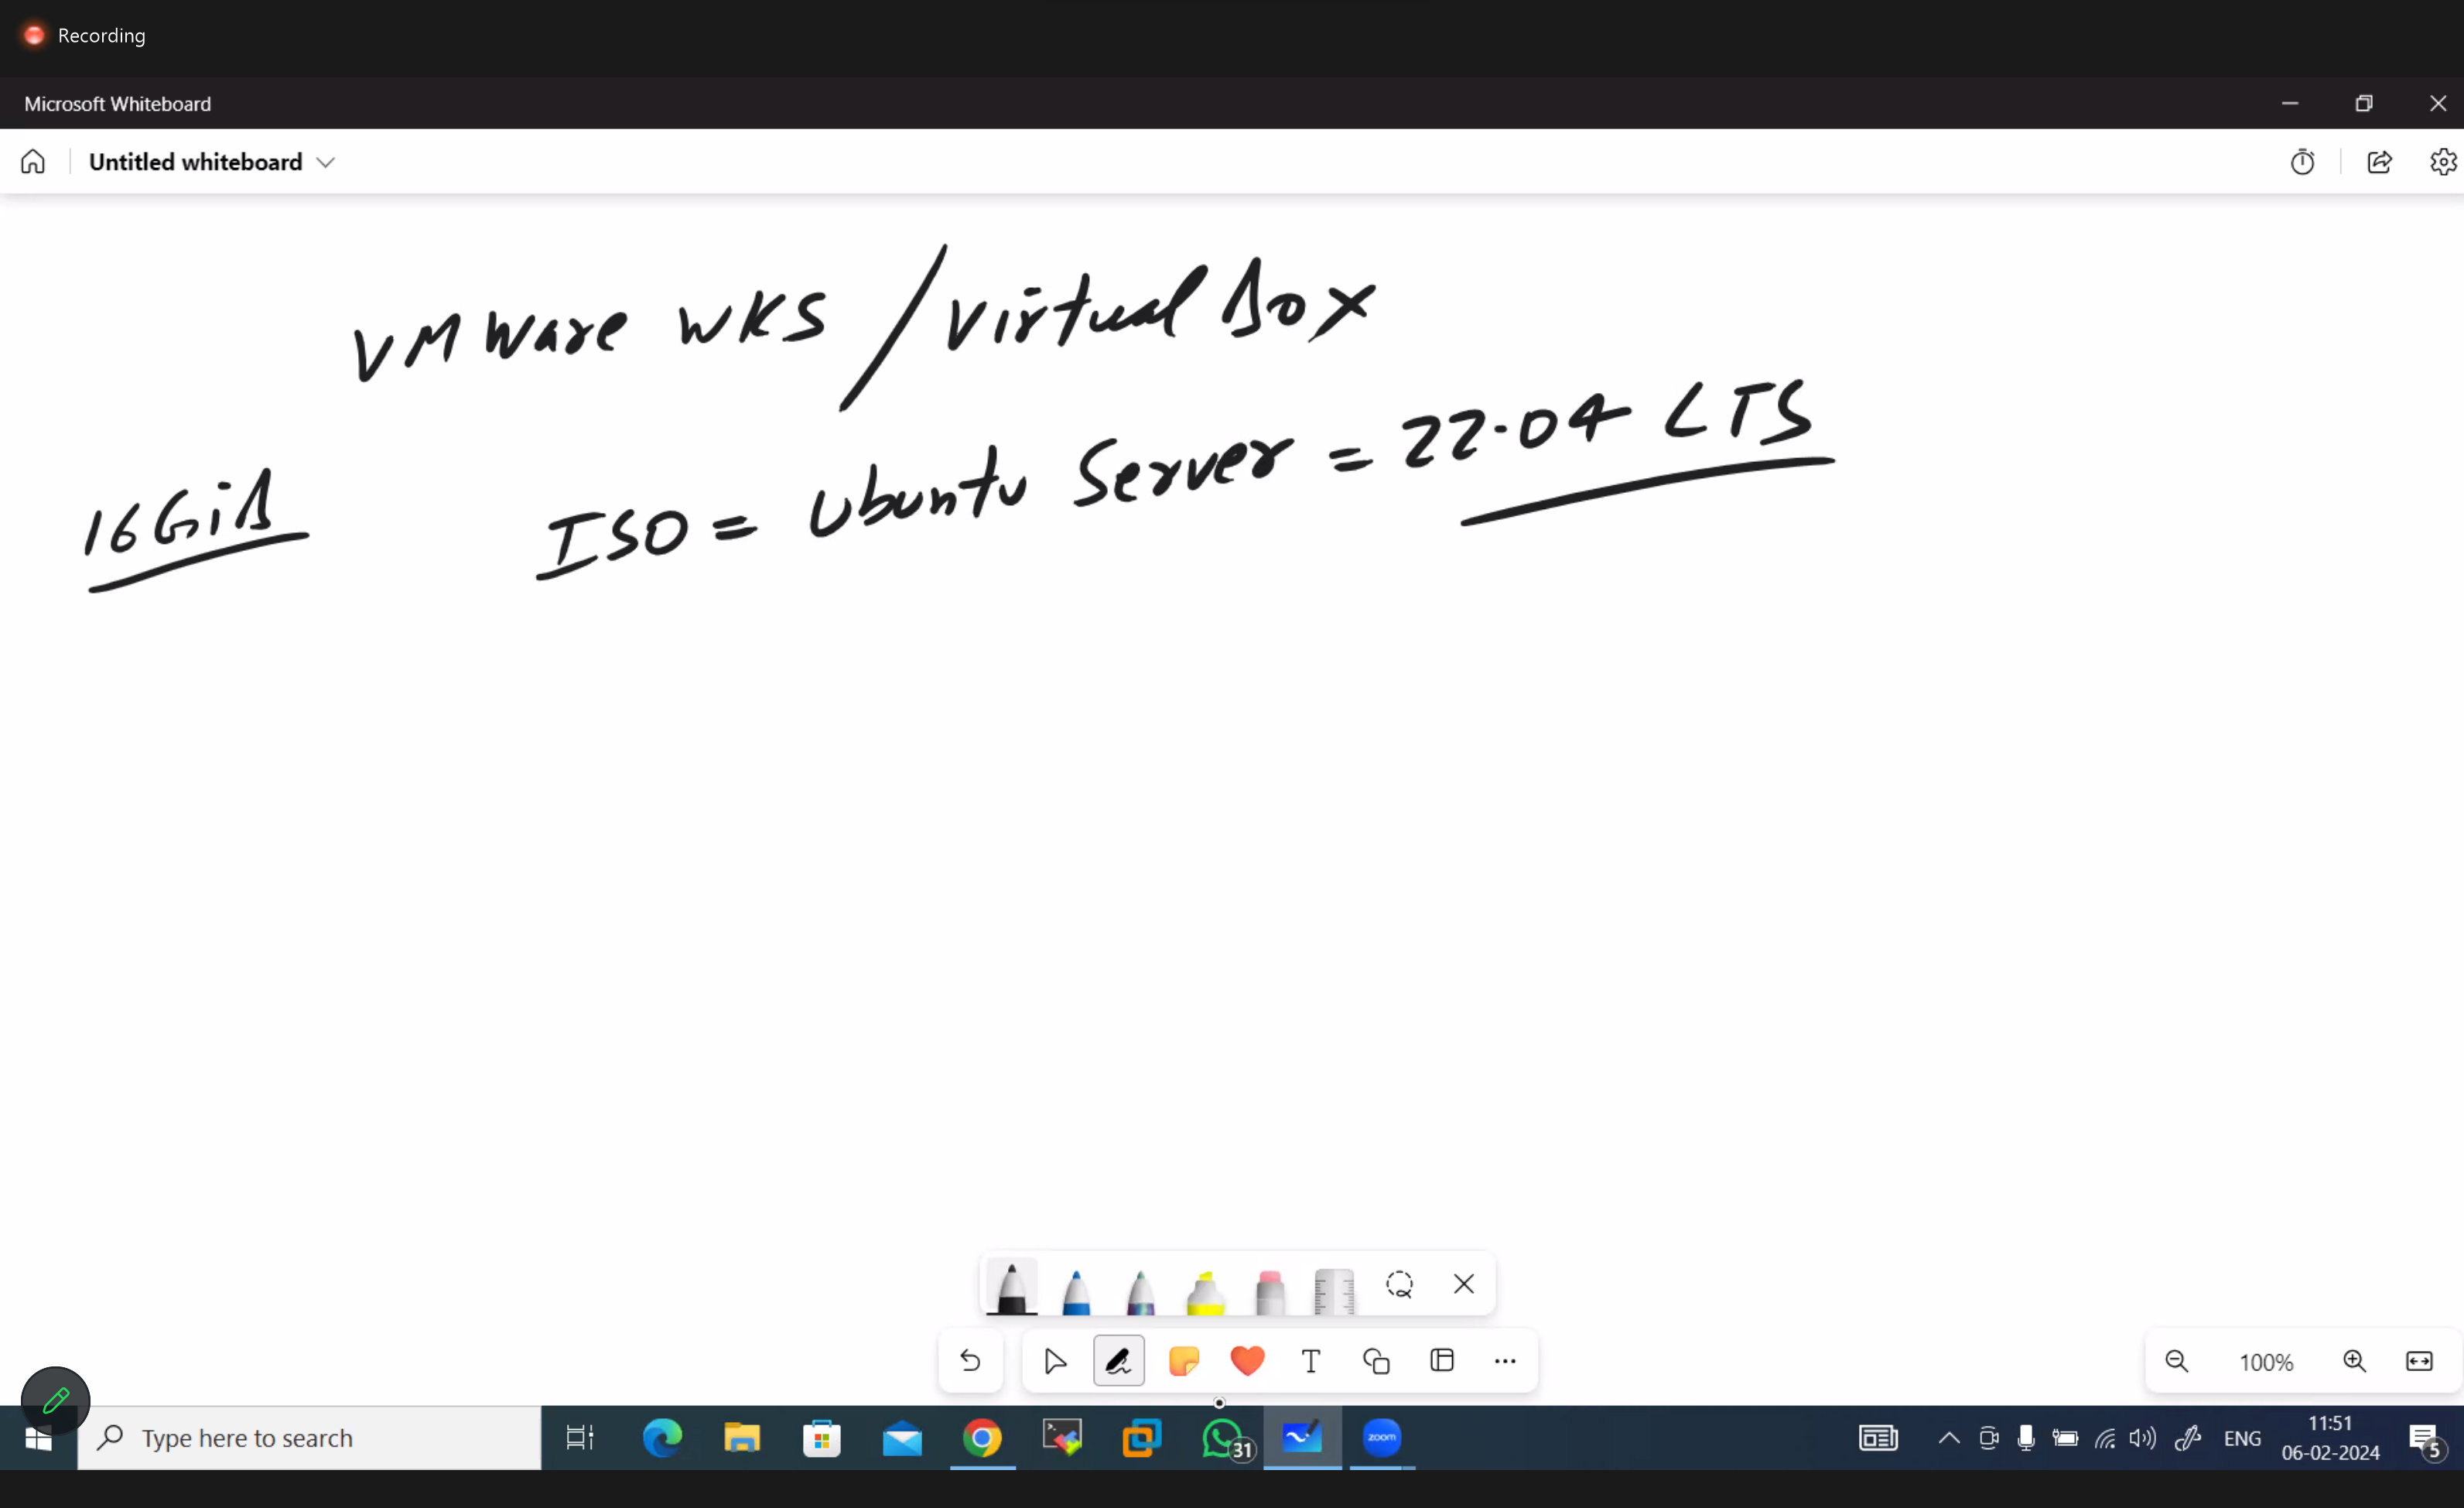 Recording
Microsoft Whiteboard
Untitled whiteboard
VMWare WKS / Virtual Box
16GiB
ISO = Ubuntu Server = 22.04 LTS
100%
Type here to search
31
zoom
ENG
11:51
06-02-2024
5